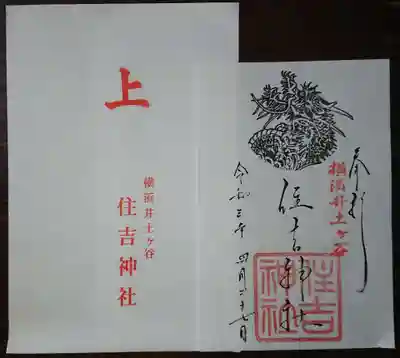 上
横浜井土ヶ谷
住吉神社
奉拝
横浜井土ヶ谷
住吉神社
住吉神社
令和三年 四月二十七日